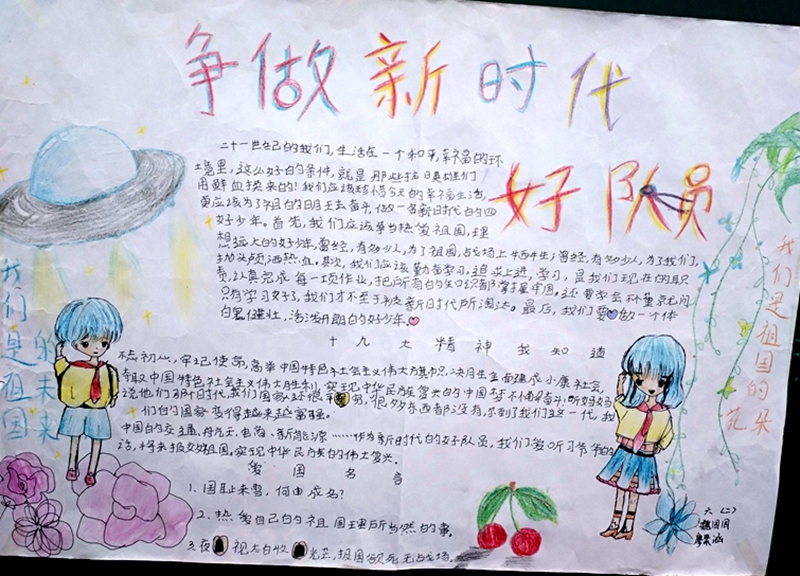 争做新时代
好队员
二十一世纪的我们,生活在一个和平,幸福的环
境里,这么好的条件,就是那些招唤英雄们
用鲜血换来的!我们应该珍惜今天的幸福生活,
更应该为了祖国的明天去奋斗,做一名新时代的四
好少年。首先,我们应该争当热爱祖国,理
想远大的好少年,曾经,有多少人,为了祖国,战场上牺牲;曾经,有多少人,为了我们,
抛头颅洒热血。其次,我们应该勤奋学习,追求上进,学习,是我们现在的职
责,认真完成每一项作业,把所有的知识都掌握牢固。还要学会不懂就问
只有学习好了,我们才不至于被新时代所淘汰。最后,我们要做一个体
白黑健壮,活泼开朗的好少年。
十九大精神我知道
不忘初心,牢记使命,高举中国特色社会主义伟大旗帜,决胜全面建成小康社会,
夺取中国特色社会主义伟大胜利,实现中华民族复兴的中国梦不懈奋斗,听妈妈
说他们那个时代,我们国家还很穷,很多东西都没有,但到了我们这一代,我
们的国家变得越来越富强。
中国的交通、航天、电商、新能源……作为新时代的好队员,我们要听习爷爷的
话,将来报效祖国。实现中华民族的伟大复兴。
爱国名言
1、国耻未雪,何由成名?
2、热爱自己的祖国理所当然的事。
3、夜视太白收光芒,报国欲死无战场。
我们是祖国
的未来
我们是祖国的花朵
六(二)